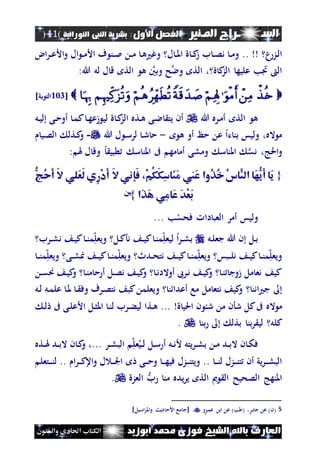 السـراج المـنير الفصل الأول: بشرية النبى النورانية (41)
الزرع؟ !! .. ومـا نصـاب زكـاة المال؟ وغيرهـا مـن صنـوف الأمـوال والأعـراض
التى تجب عليها الزكاة؟، الذى وضَّح وبيَّن هو الذى قال له الله:
﴿ خُذْ مِنْ أَمْوَٰلِهِمْ صَدَقَةً تُطَهِّرُهُمْ وَتُزَكِّيهِم بِهَا ﴾ [103التوبة]
هو الذى أمره الله أن يتقاضى هـذه الزكـاة ليوزعهـا كمـا أوحـى إليـه
مولاه، وليس بناءاً عن حظ أو هوى – حاشا لرسول الله - وكـذلك الصيـام
والحج، نسَّك المناسك ومشى أمامهم فى المناسك تطبيقاً وقال لهم:
{ يَا أَيُّهَا النَّاسُ خُذُوا عَنِّي مَنَاسِكَكُمْ، فَإني لاَ أَدْرِي لَعلي لاَ أَحُجُّ
بَعْدَ عَامِي هَذَا }
وليس أمر العبادات فحسْب ...
بـل إن الله جعلـه بشـراً ليعلِّمنـا كيـف نأكـل؟ ويعلِّمنـا كيـف نشـرب؟
ويعلِّمنـا كيـف نلـبس؟ ويعلِّمنـا كيـف نتحـدث؟ ويعلِّمنـا كيـف نمشـى؟ ويعلِّمنـا
كيف نعامل زوجاتنا؟ وكيف نربى أولادنا؟ وكيف نصـل أرحامنـا؟ وكيـف نحسـن
إلى جيراننا؟ وكيف نتعامل مع أعدائنا؟ ويعلمن كيف نتصـرف وفقـا لما علمـه لـه
مولاه فى كل شأن من شئون الحياة! ... هـذا ليضـرب لنـا المثـل الأعلـى فى ذلـك
كله؟ ليقربنا بذلك إلى ربنا .
فكـان لابـد مـن بشـريته لأنـه أرسـل ليُعلِّـم البشـر ...، وكـان لابـد لهـذه
البشـرية أن تتنـزل لنـا .. ويتنـزل فيهـا وحـى ذى الجـلال والإكـرام .. لنتعلـم
المنهج الصحيح القويم الذى يريده منا ربُّ العزة .
5 (ن) عن جابر، (طب) عن ابن عمرو [جامع الأحاديث والمراسيل]
العارف بالله الشيخ فوزى محمد أبوزيد الكتاب الحادي والستون